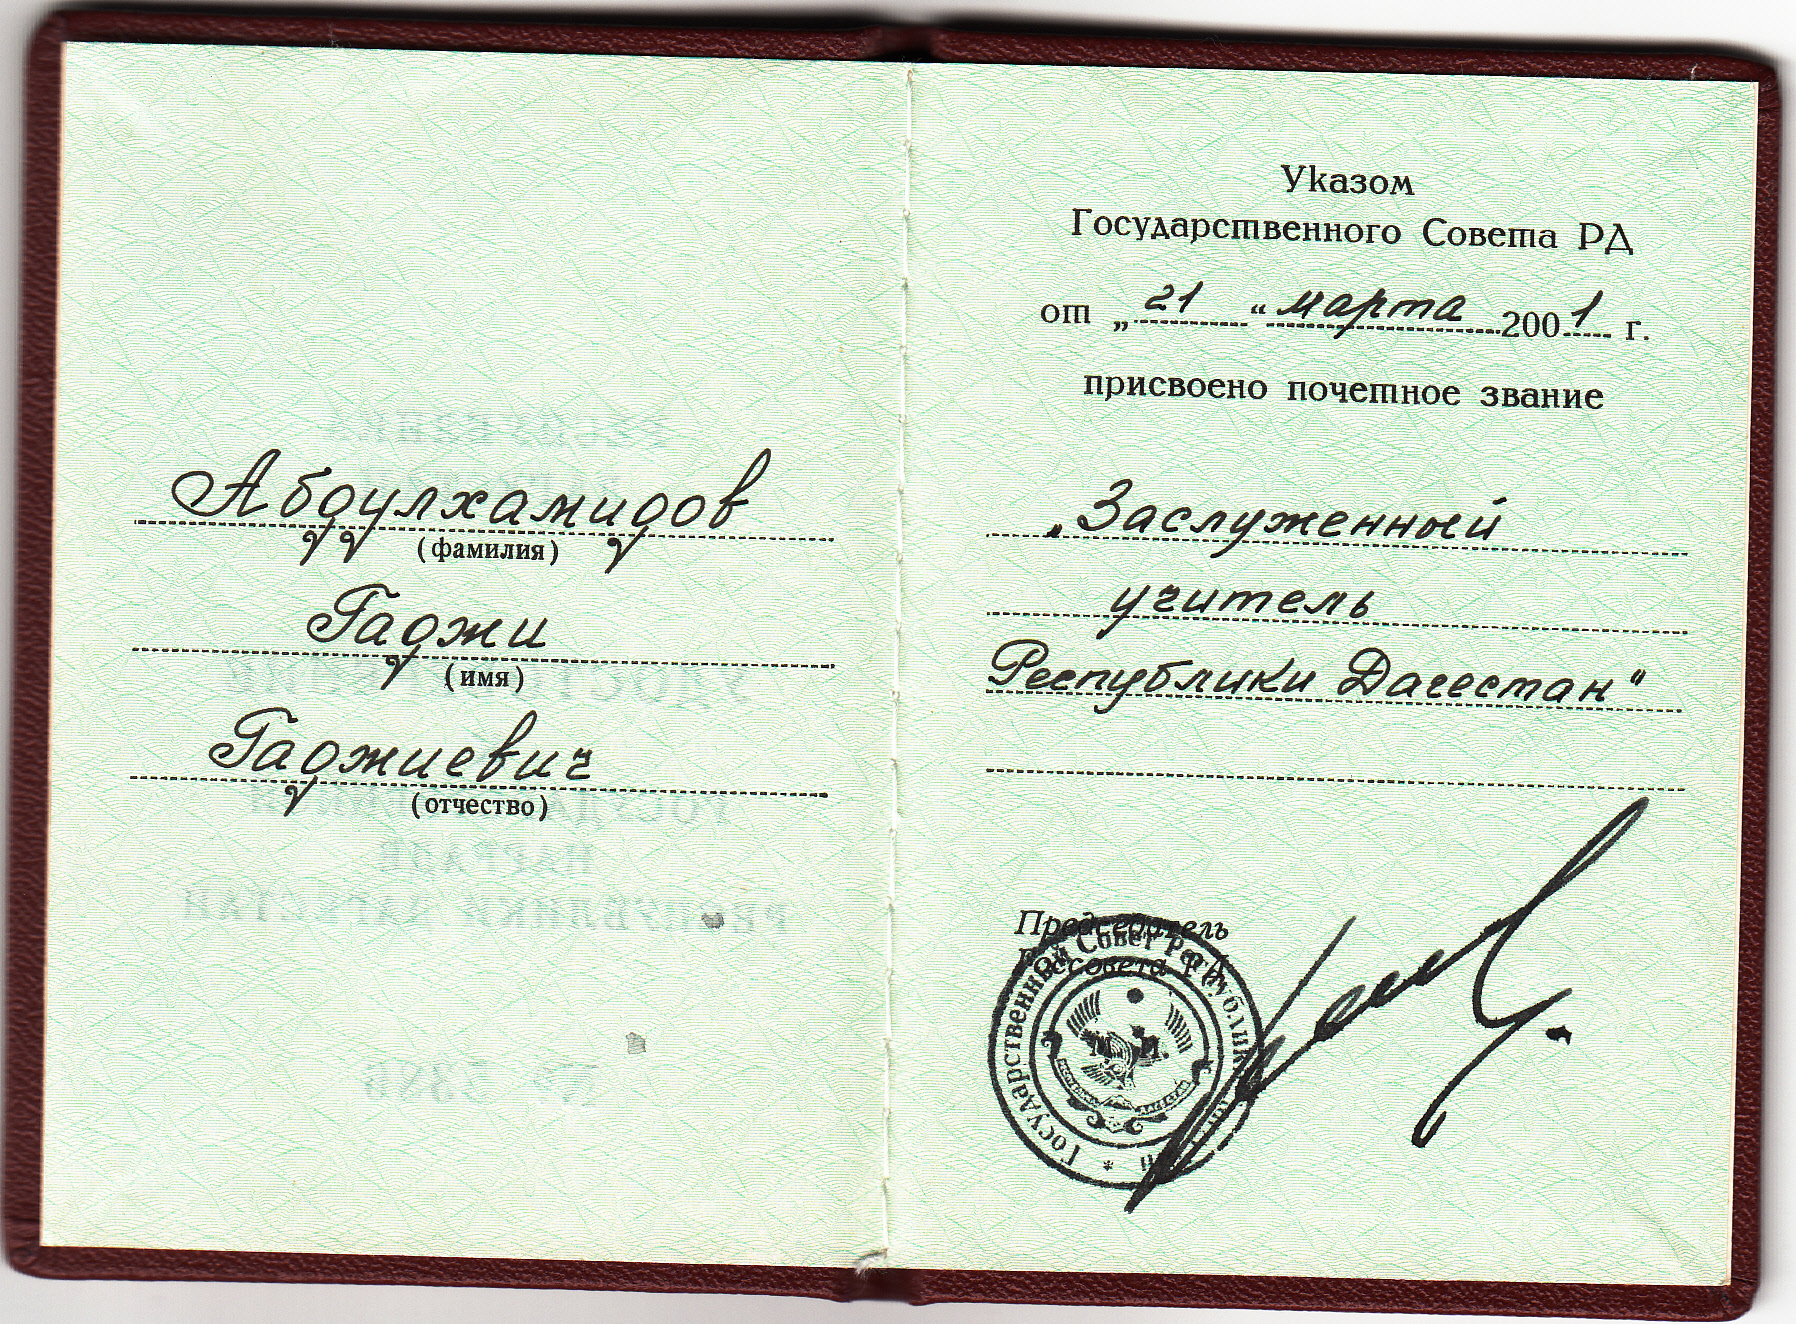 Абдулхамидов
(фамилия)
Гаджи
(имя)
Гаджиевич
(отчество)
Указом
Государственного Совета РД
от „21“ марта 2001 г.
присвоено почетное звание
„Заслуженный
учитель
Республики Дагестан“
Председатель
Госсовета РД
М. П.
Государственный Совет Республики